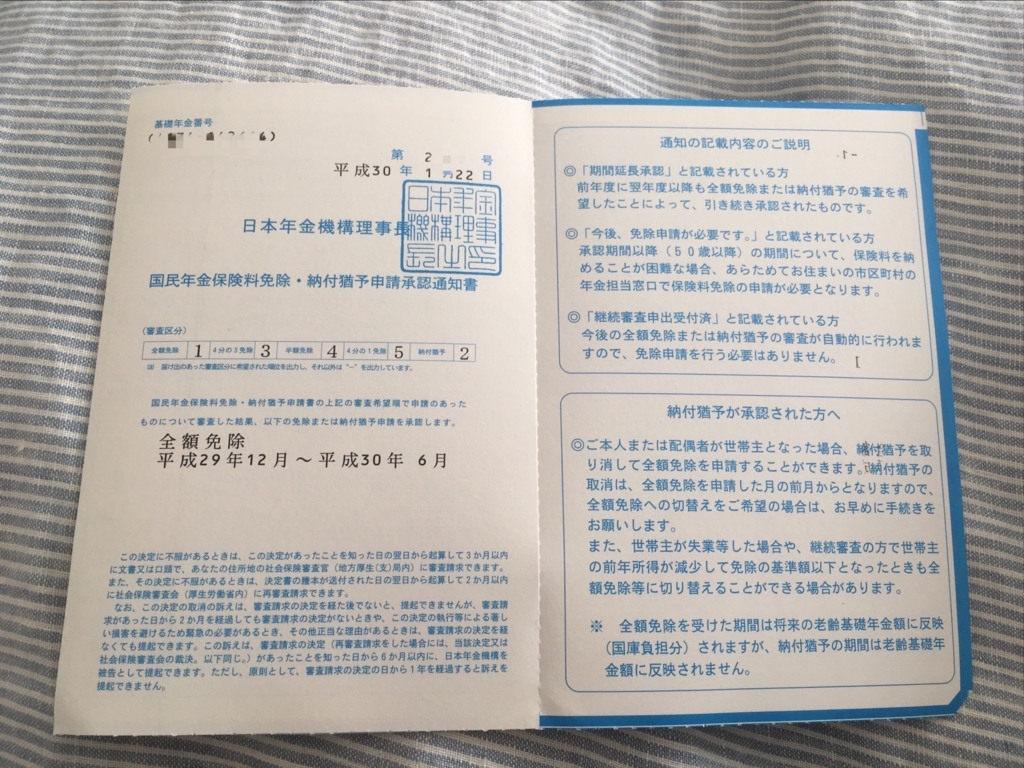 基礎年金番号
第 2 号
平成30 年 1 月22 日
日本年金機構理事長
日本年金
機構理事
長之印
国民年金保険料免除・納付猶予申請承認通知書
(審査区分)
全額免除 1 4分の3免除 3 半額免除 4 4分の1免除 5 納付猶予 2
(注) 届け出のあった審査区分に希望された順位を出力し、それ以外は“－”を出力しています。
国民年金保険料免除・納付猶予申請書の上記の審査希望順で申請のあった
ものについて審査した結果、以下の免除または納付猶予申請を承認します。
全額免除
平成29年12月～平成30年 6月
この決定に不服があるときは、この決定があったことを知った日の翌日から起算して3か月以内
に文書又は口頭で、あなたの住所地の社会保険審査官（地方厚生(支)局内）に審査請求できます。
また、その決定に不服があるときは、決定書の謄本が送付された日の翌日から起算して2か月以内
に社会保険審査会（厚生労働省内）に再審査請求できます。
なお、この決定の取消の訴えは、審査請求の決定を経た後でないと、提起できませんが、審査請
求があった日から2か月を経過しても審査請求の決定がないときや、この決定の執行等による著し
い損害を避けるため緊急の必要があるとき、その他正当な理由があるときは、審査請求の決定を経
なくても提起できます。この訴えは、審査請求の決定（再審査請求をした場合には、当該決定又は
社会保険審査会の裁決。以下同じ。）があったことを知った日から6か月以内に、日本年金機構を
被告として提起できます。ただし、原則として、審査請求の決定の日から1年を経過すると訴えを
提起できません。
通知の記載内容のご説明
◎「期間延長承認」と記載されている方
前年度に翌年度以降も全額免除または納付猶予の審査を希
望したことによって、引き続き承認されたものです。
◎「今後、免除申請が必要です。」と記載されている方
承認期間以降（５０歳以降）の期間について、保険料を納
めることが困難な場合、あらためてお住まいの市区町村の
年金担当窓口で保険料免除の申請が必要となります。
◎「継続審査申出受付済」と記載されている方
今後の全額免除または納付猶予の審査が自動的に行われま
すので、免除申請を行う必要はありません。
納付猶予が承認された方へ
◎ご本人または配偶者が世帯主となった場合、納付猶予を取
り消して全額免除を申請することができます。納付猶予の
取消は、全額免除を申請した月の前月からとなりますので、
全額免除への切替えをご希望の場合は、お早めに手続きを
お願いします。
また、世帯主が失業等した場合や、継続審査の方で世帯主
の前年所得が減少して免除の基準額以下となったときも全
額免除等に切り替えることができる場合があります。
※ 全額免除を受けた期間は将来の老齢基礎年金額に反映
（国庫負担分）されますが、納付猶予の期間は老齢基礎年
金額に反映されません。